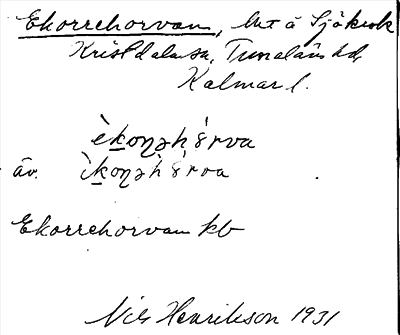 Ekorrehorvan, But å Sjökrok
Kristdala sn, Tunaläns hd,
Kalmar l.
èkoꞃəh śrva
äv. ìkoꞃəh śrva
Ekorrehorvan kb
Nils Henrikson 1931